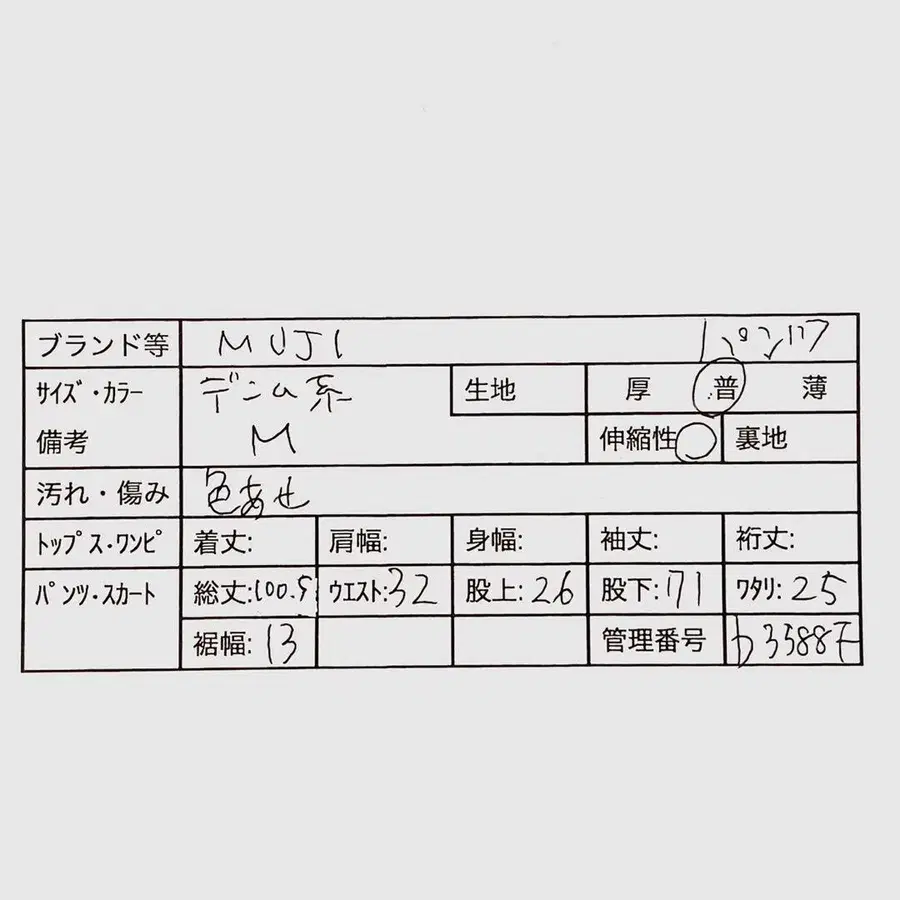 ブランド等 MUJI パンツ
サイズ・カラー デニム系 生地 厚 普 薄
備考 M 伸縮性 ○ 裏地
汚れ・傷み 色あせ
トップス・ワンピ 着丈: 肩幅: 身幅: 袖丈: 裄丈:
パンツ・スカート 総丈:100.5 ウエスト:32 股上:26 股下:71 ワタリ:25
裾幅:13 管理番号 b3588F